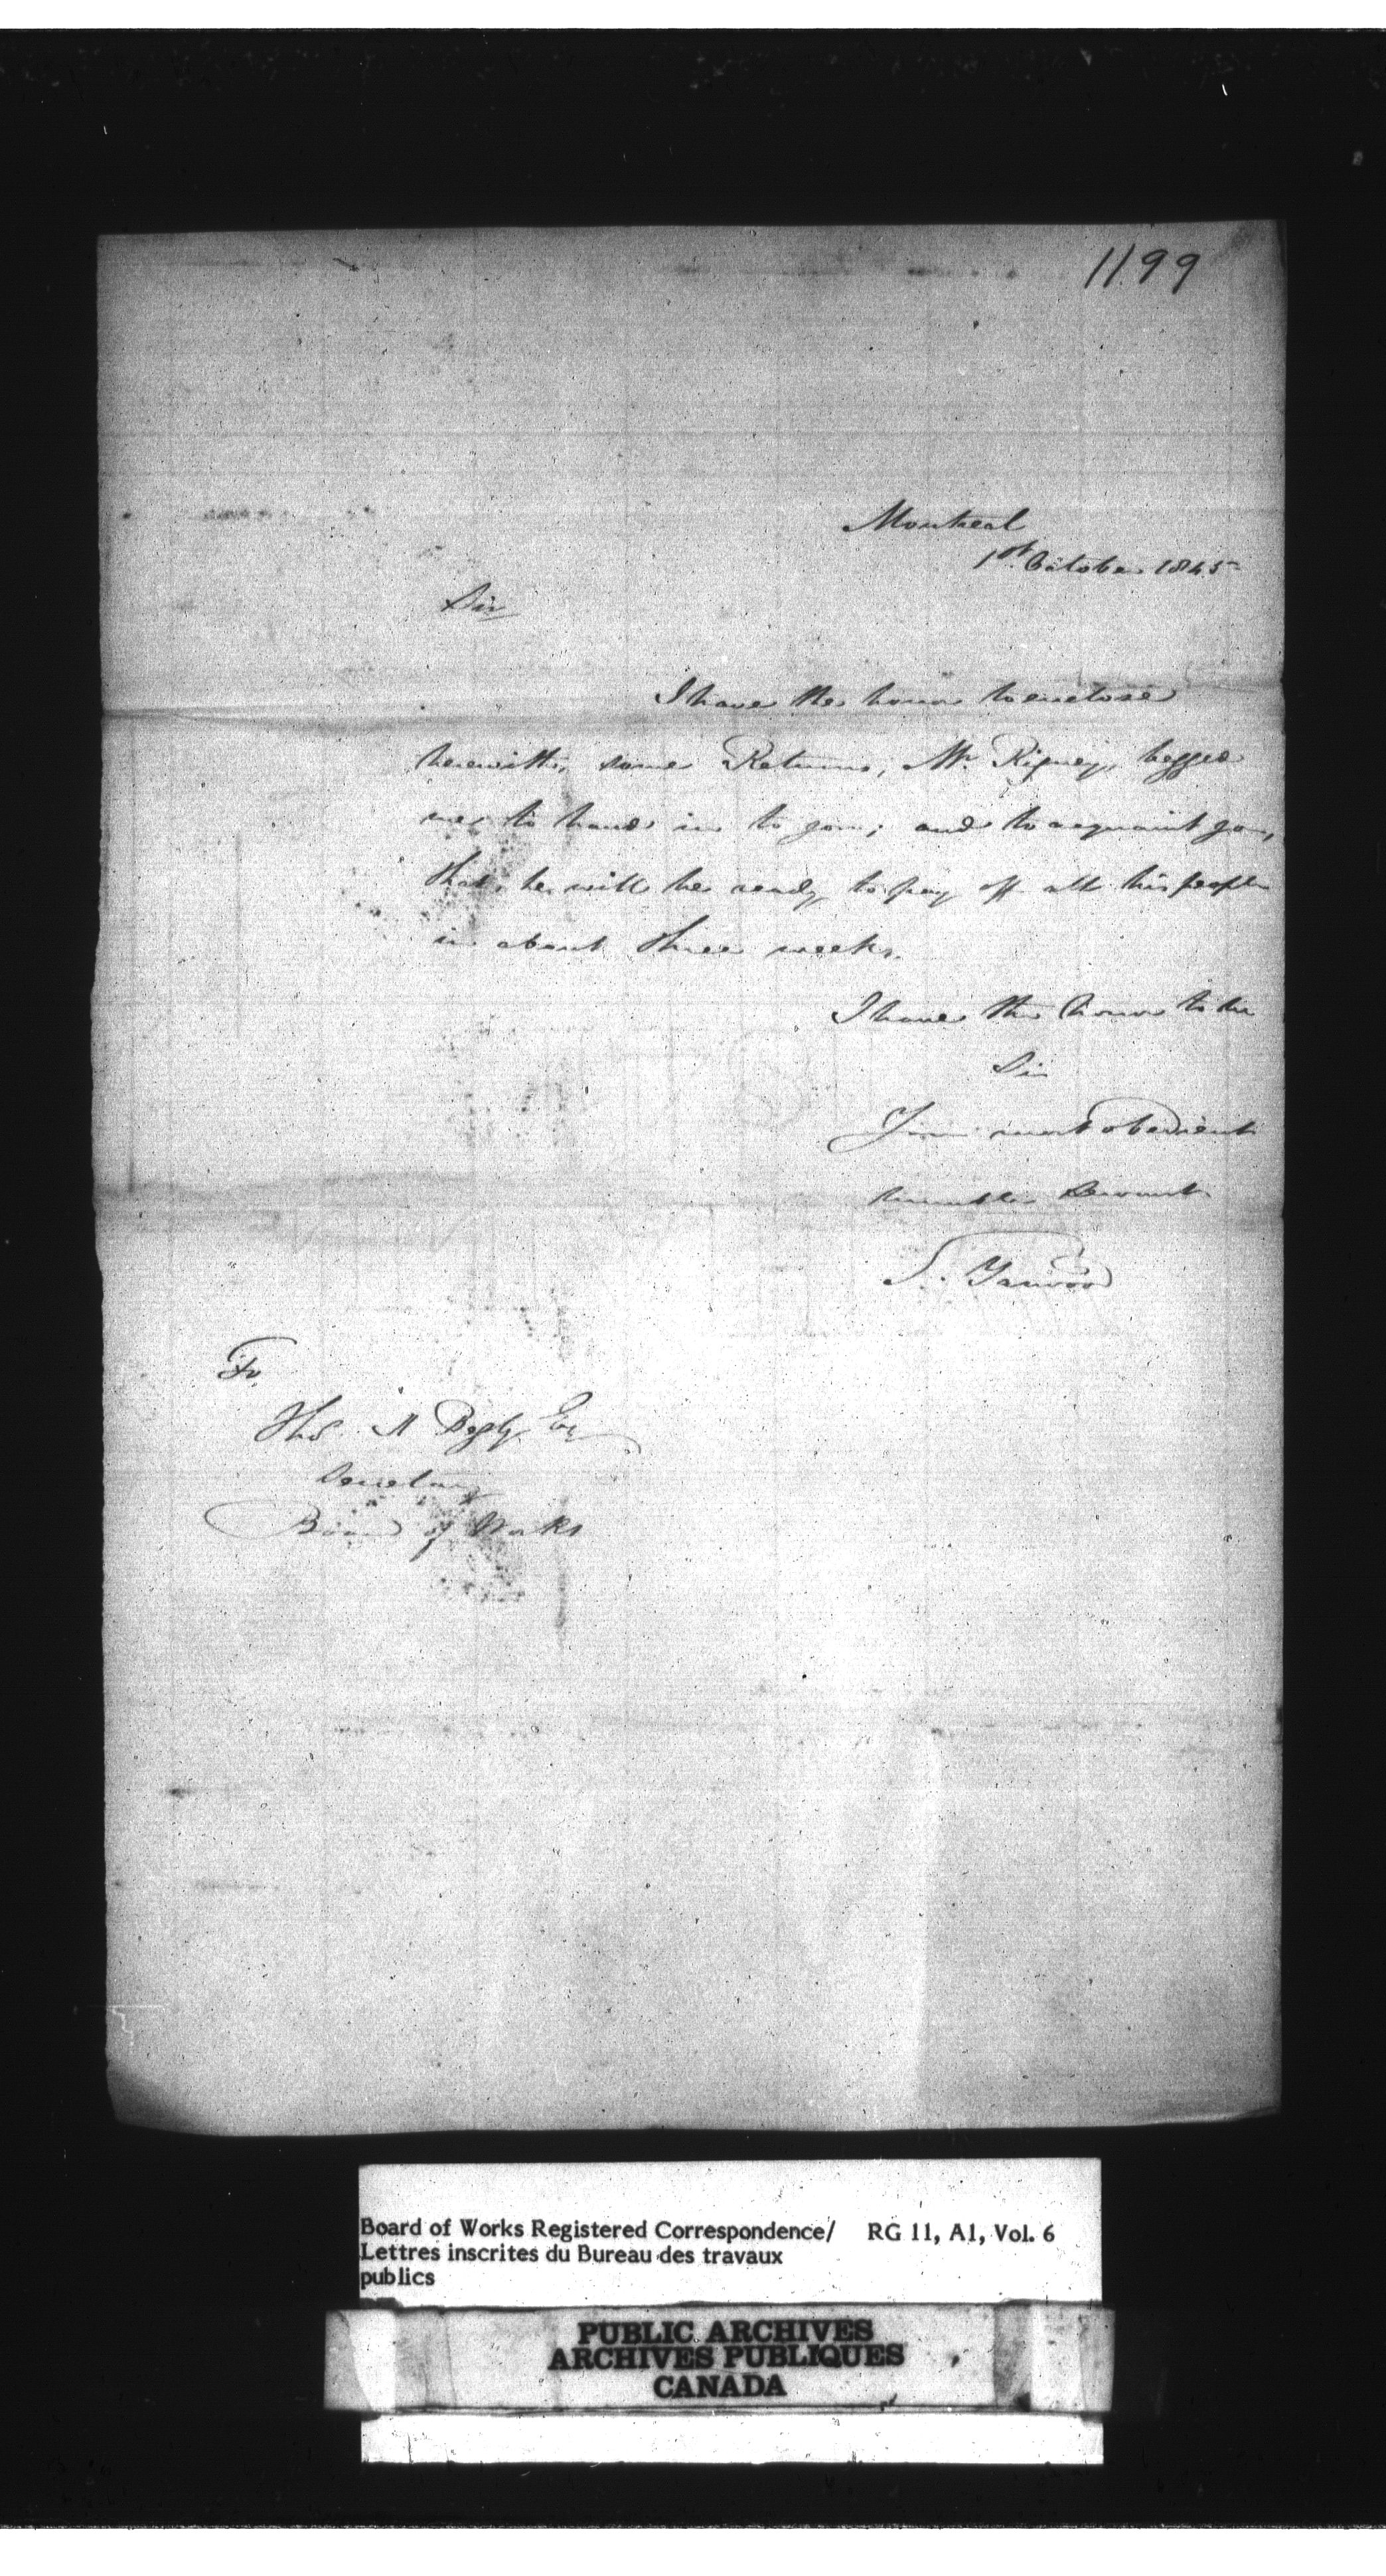 1199
Montreal
1st October 1845
Sir
I have the honor to enclose
herewith, some Returns, Mr. Rigney, begged
me to hand in to you; and to acquaint you,
that, he will be ready to pay off all his people
in about three weeks.
I have the honor to be
Sir
Your most obedient
humble Servant
S. Yarwood
To
Thos. A Begly Esq
Secretary
Board of Works
Board of Works Registered Correspondence/ RG 11, A1, Vol. 6
Lettres inscrites du Bureau des travaux
publics
PUBLIC ARCHIVES
ARCHIVES PUBLIQUES
CANADA